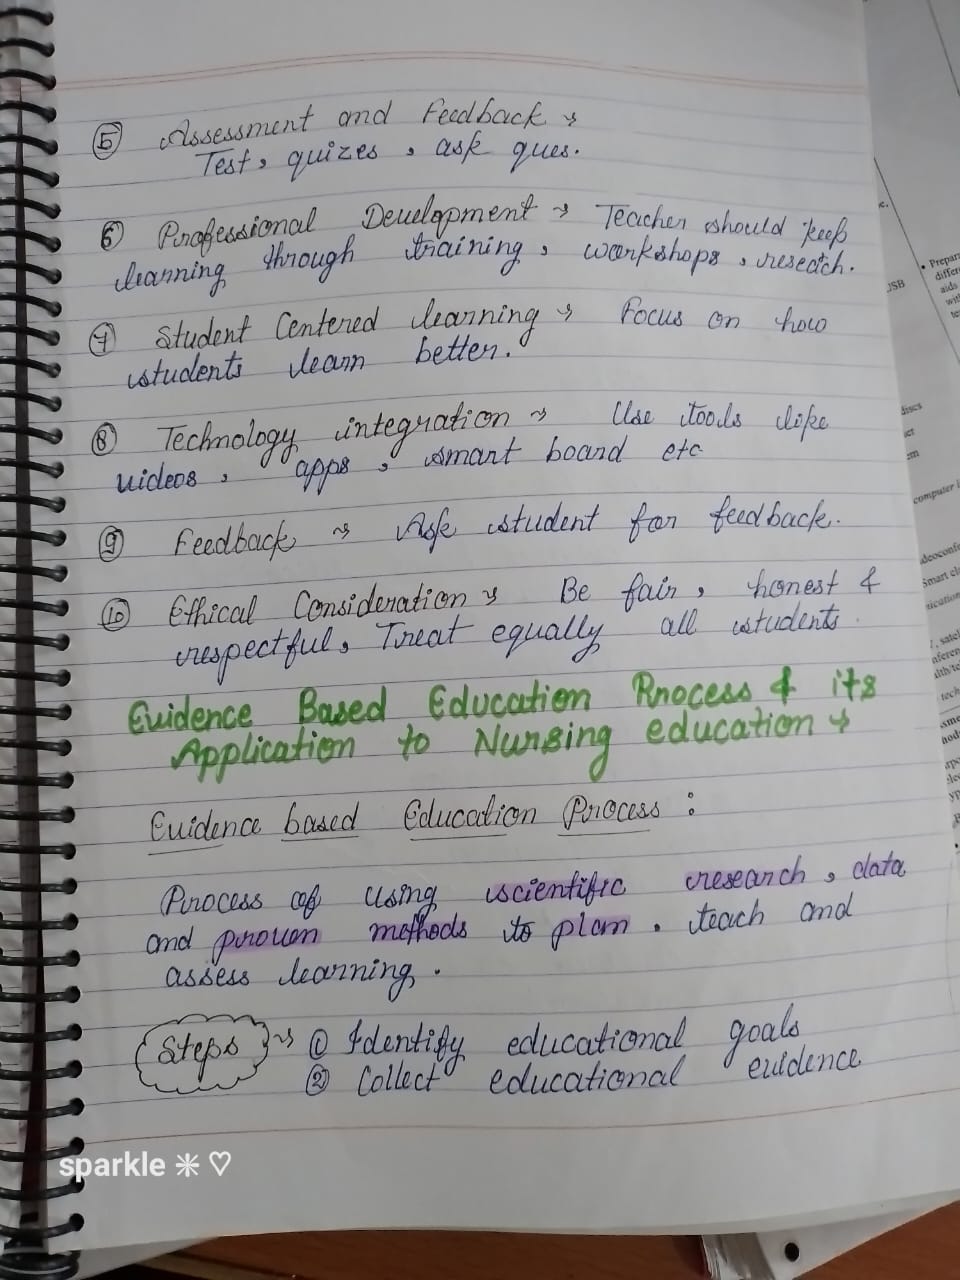 ⑤ Assessment and Feedback →
Test, quizes, ask ques.
⑥ Professional Development → Teacher should keep
learning through training, workshops, reseach.
⑦ Student Centered learning → Focus on how
students learn better.
⑧ Technology integration → Use tools like
videos, apps, smart board etc
⑨ Feedback → Ask student for feedback.
⑩ Ethical Consideration → Be fair, honest &
respectful, Treat equally all students.
Evidence Based Education Process & its
Application to Nursing education →
Evidence based Education Process:
Process of using scientific research, data
and proven methods to plan, teach and
assess learning.
Steps → ① Identify educational goals
② Collect educational evidence
sparkle ✳ ♡
USB
• Prepar
differ
aids
computer
Smart cl